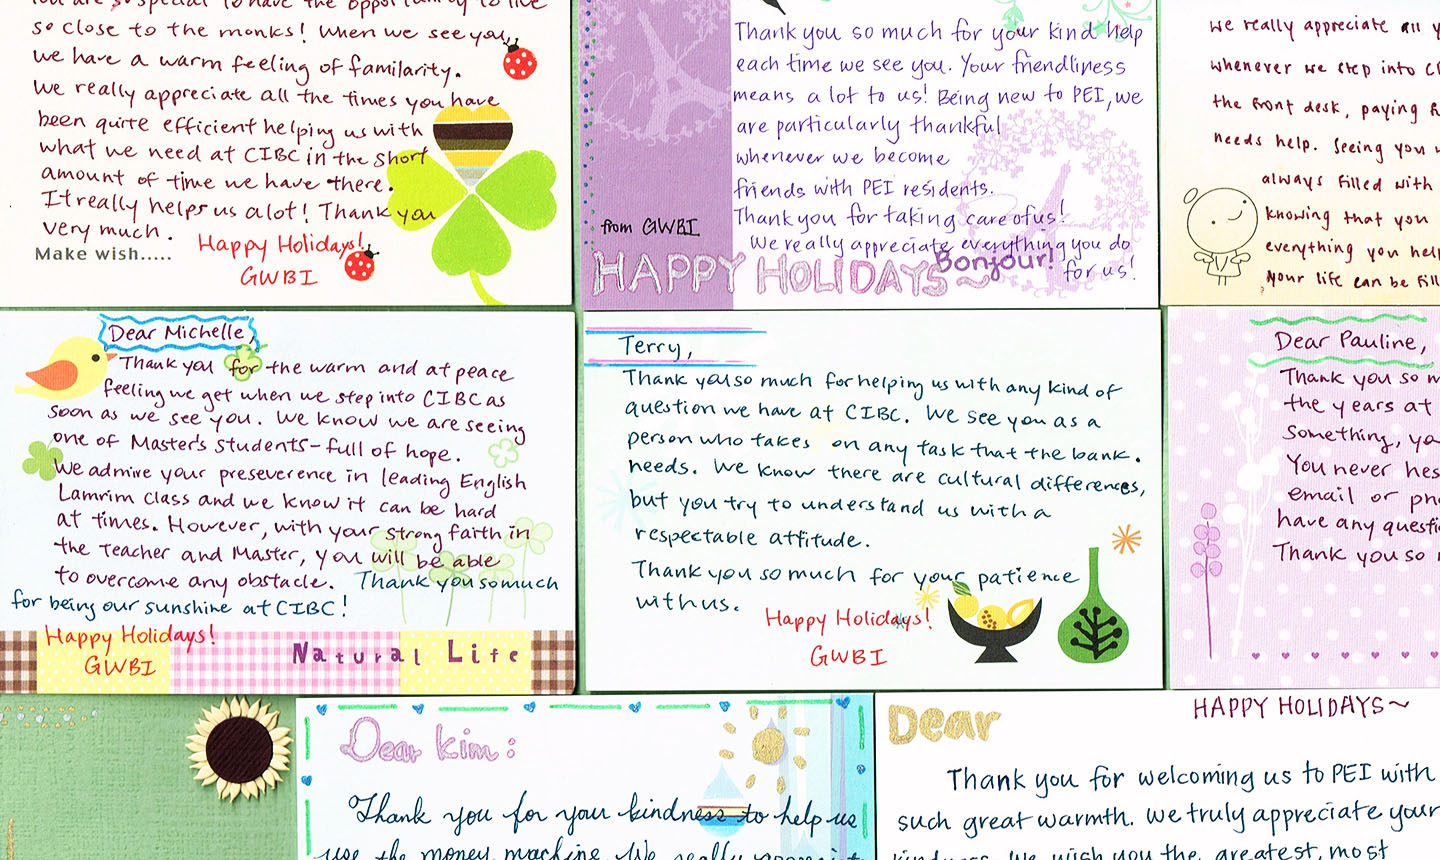 You are so special to have the opportunity to live
so close to the monks! When we see you,
we have a warm feeling of familarity.
We really appreciate all the times you have
been quite efficient helping us with
what we need at CIBC in the short
amount of time we have there.
It really helps us a lot! Thank you
very much.
Make wish.....
Happy Holidays!
GWBI
Thank you so much for your kind help
each time we see you. Your friendliness
means a lot to us! Being new to PEI, we
are particularly thankful
whenever we become
friends with PEI residents.
Thank you for taking care of us!
We really appreciate everything you do
for us!
from GWBI
HAPPY HOLIDAYS~
Bonjour!
We really appreciate all y
whenever we step into C
the front desk, paying
needs help. Seeing you
always filled with
knowing that you
everything you help
your life can be fill
Dear Michelle,
Thank you for the warm and at peace
feeling we get when we step into CIBC as
soon as we see you. We know we are seeing
one of Master's students - full of hope.
We admire your preseverence in leading English
Lamrim class and we know it can be hard
at times. However, with your strong faith in
the Teacher and Master, you will be able
to overcome any obstacle. Thank you so much
for being our sunshine at CIBC!
Happy Holidays!
GWBI
Natural Life
Terry,
Thank you so much for helping us with any kind of
question we have at CIBC. We see you as a
person who takes on any task that the bank.
needs. We know there are cultural differences,
but you try to understand us with a
respectable attitude.
Thank you so much for your patience
with us.
Happy Holidays!
GWBI
Dear Pauline,
Thank you so m
the years at
Something, yo
You never hes
email or pho
have any questi
Thank you so
Dear Kim:
Thank you for your kindness to help us
use the money machine. We really appreciat
HAPPY HOLIDAYS~
Dear
Thank you for welcoming us to PEI with
such great warmth. We truly appreciate your
kindness. We wish you the greatest, most